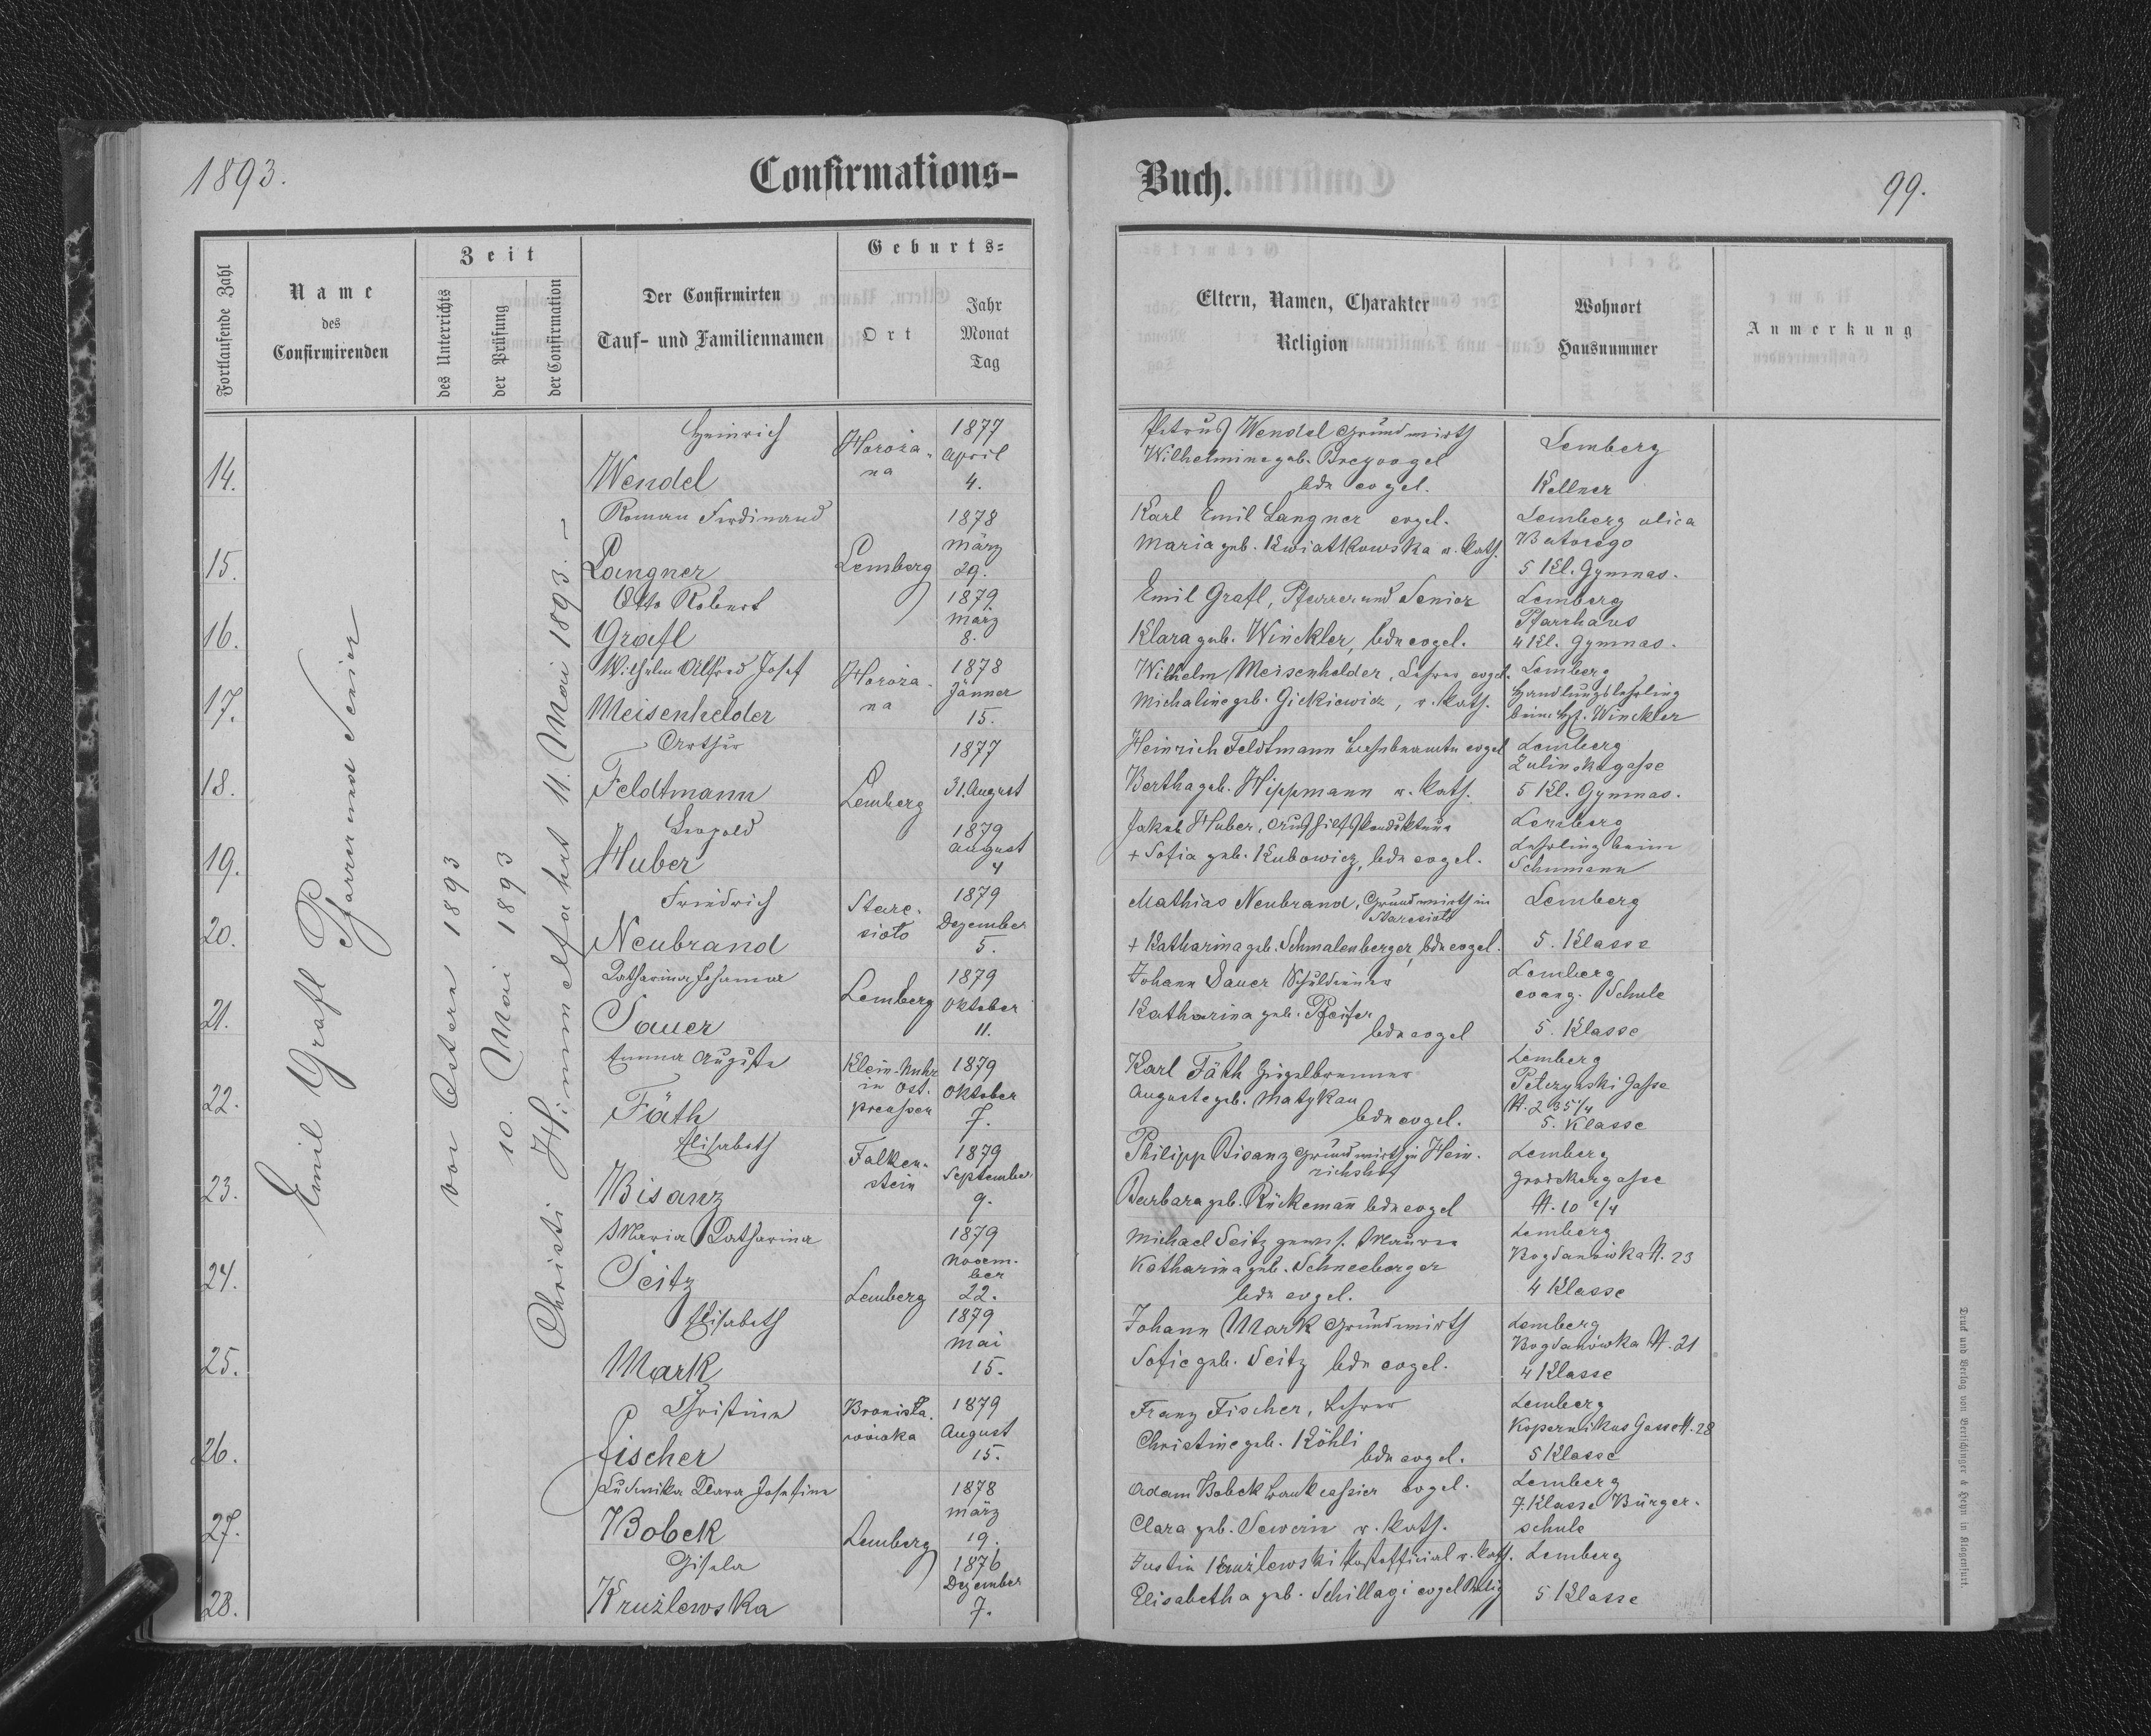 1893.
Confirmations-
Buch.
99.
Fortlaufende Zahl
Name
des
Confirmirenden
Zeit
des Unterrichts
der Prüfung
der Confirmation
Der Confirmirten
Tauf- und Familiennamen
Geburts-
Ort
Jahr
Monat
Tag
Eltern, Namen, Charakter
Religion
Wohnort
Hausnummer
Anmerkung
Emil Grafl Pfarrer und Senior
vor Ostern 1893
10. Mai 1893
Christi Himmelfahrt 11. Mai 1893. –
14.
Heinrich
Wendel
Horoża-
na
1877
April
4.
Petrus Wendel Grundwirth
Wilhelmine geb. Breyvogel
bde evgel.
Lemberg
Kellner
15.
Roman Ferdinand
Langner
Lemberg
1878
März
29.
Karl Emil Langner evgel.
Maria geb. Kwiatkowska r. kath.
Lemberg ulica
Batorego
5 Kl. Gymnas.
16.
Otto Robert
Grafl
1879
März
8.
Emil Grafl, Pfarrer und Senior
Klara geb. Winckler, bde evgel.
Lemberg
Pfarrhaus
4 Kl. Gymnas.
17.
Wilhelm Alfred Josef
Meisenhelder
Horoża-
na
1878
Jänner
15.
Wilhelm Meisenhelder, Lehrer evgel.
Michaline geb. Gickiewicz, r. kath.
Lemberg
Handlungslehrling
beim H. Winckler
18.
Arthur
Feldtmann
Lemberg
1877
31. August
Heinrich Feldtmann evgel
Bertha geb. Hippmann r. kath.
Lemberg
Zulinskigasse
5 Kl. Gymnas.
19.
Leopold
Huber
1879
August
4
Jakob Huber, Aushilfskondukteur
+ Sofia geb. Kubowicz, bde evgel.
Lemberg
Lehrling beim
Schumann
20.
Friedrich
Neubrand
Stare-
sioło
1879
Dezember
5.
Mathias Neubrand, Grundwirth in
Staresioło
+ Katharina geb. Schmalenberger, bde evgel.
Lemberg
5. Klasse
21.
Katharina Johanna
Sauer
Lemberg
1879
Oktober
11.
Johann Sauer Schuldiener
Katharina geb. Pfeifer
bde evgel
Lemberg
evang. Schule
5. Klasse
22.
Emma Auguste
Fäth
Klein-Nuhr
in Ost-
preussen
1879
Oktober
7.
Karl Fäth Ziegelbrenner
Auguste geb. Matykau
bde evgel.
Lemberg
Pelczyński Gasse
N. 235 1/4
5. Klasse
23.
Elisabeth
Bisanz
Falken-
stein
1879
September
9.
Philipp Bisanz Grundwirth in Hein-
richshof
Barbara geb. Rückemann bde evgel
Lemberg
Grodekergasse
N. 10 1/4
24.
Maria Katharina
Seitz
Lemberg
1879
Novem-
ber
22.
Michael Seitz Maurer
Katharina geb. Schneeberger
bde evgel.
Lemberg
Bogdanówka N. 23
4 Klasse
25.
Elisabeth
Mark
1879
Mai
15.
Johann Mark Grundwirth
Sofie geb. Seitz bde evgel.
Lemberg
Bogdanówka N. 21
4 Klasse
26.
Christine
Fischer
Bronisła-
wówka
1879
August
15.
Franz Fischer, Lehrer
Christine geb. Köhli
bde evgel.
Lemberg
Kopernikus Gasse N. 28
5 Klasse
27.
Ludwika Klara Josefine
Bobek
Lemberg
1878
März
19.
Adam Bobek Bankcassier evgel.
Clara geb. Sewerin r. kath.
Lemberg
7. Klasse Bürger-
schule
28.
Gisela
Kruźlewska
1876
Dezember
7.
Justin Kruźlewski Postofficial r. kath.
Elisabetha geb. Schillagi evgel Relig
Lemberg
5 Klasse
Druk und Verlag von Bertschinger & Heyn in Klagenfurt.